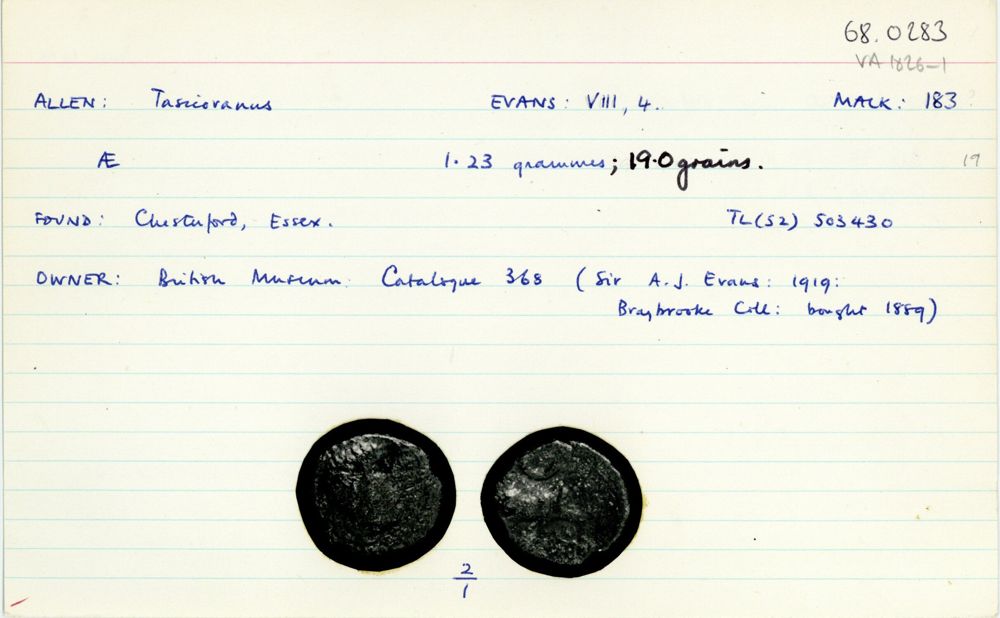 68.0283
VA 1826-1
ALLEN: Tasciovanus EVANS: VIII, 4. MACK: 183 ?
Æ 1.23 grammes; 19.0 grains. 19
FOUND: Chesterford, Essex. TL(52) 503430
OWNER: British Museum: Catalogue 368 (Sir A.J. Evans: 1919:
Braybrooke Coll: bought 1889)
2
1